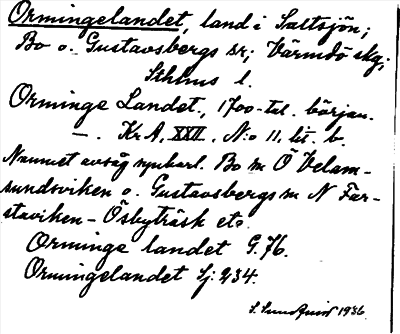 Ormingelandet, land i Saltsjön;
Bo o. Gustavsbergs sr; Värmdö skg;
Sthlms l.
Orminge Landet, 1700-tal. början.
—. Kr A, XXII, N:o 11, lit. b.
Namnet avsåg uppbarl. Bo m Ö Velam-
sundsviken o. Gustavsbergs m N Far-
staviken - Ösbyträsk etc.
Orminge landet G. 76.
Ormingelandet Sj: 234.
S. Sundquist 1936